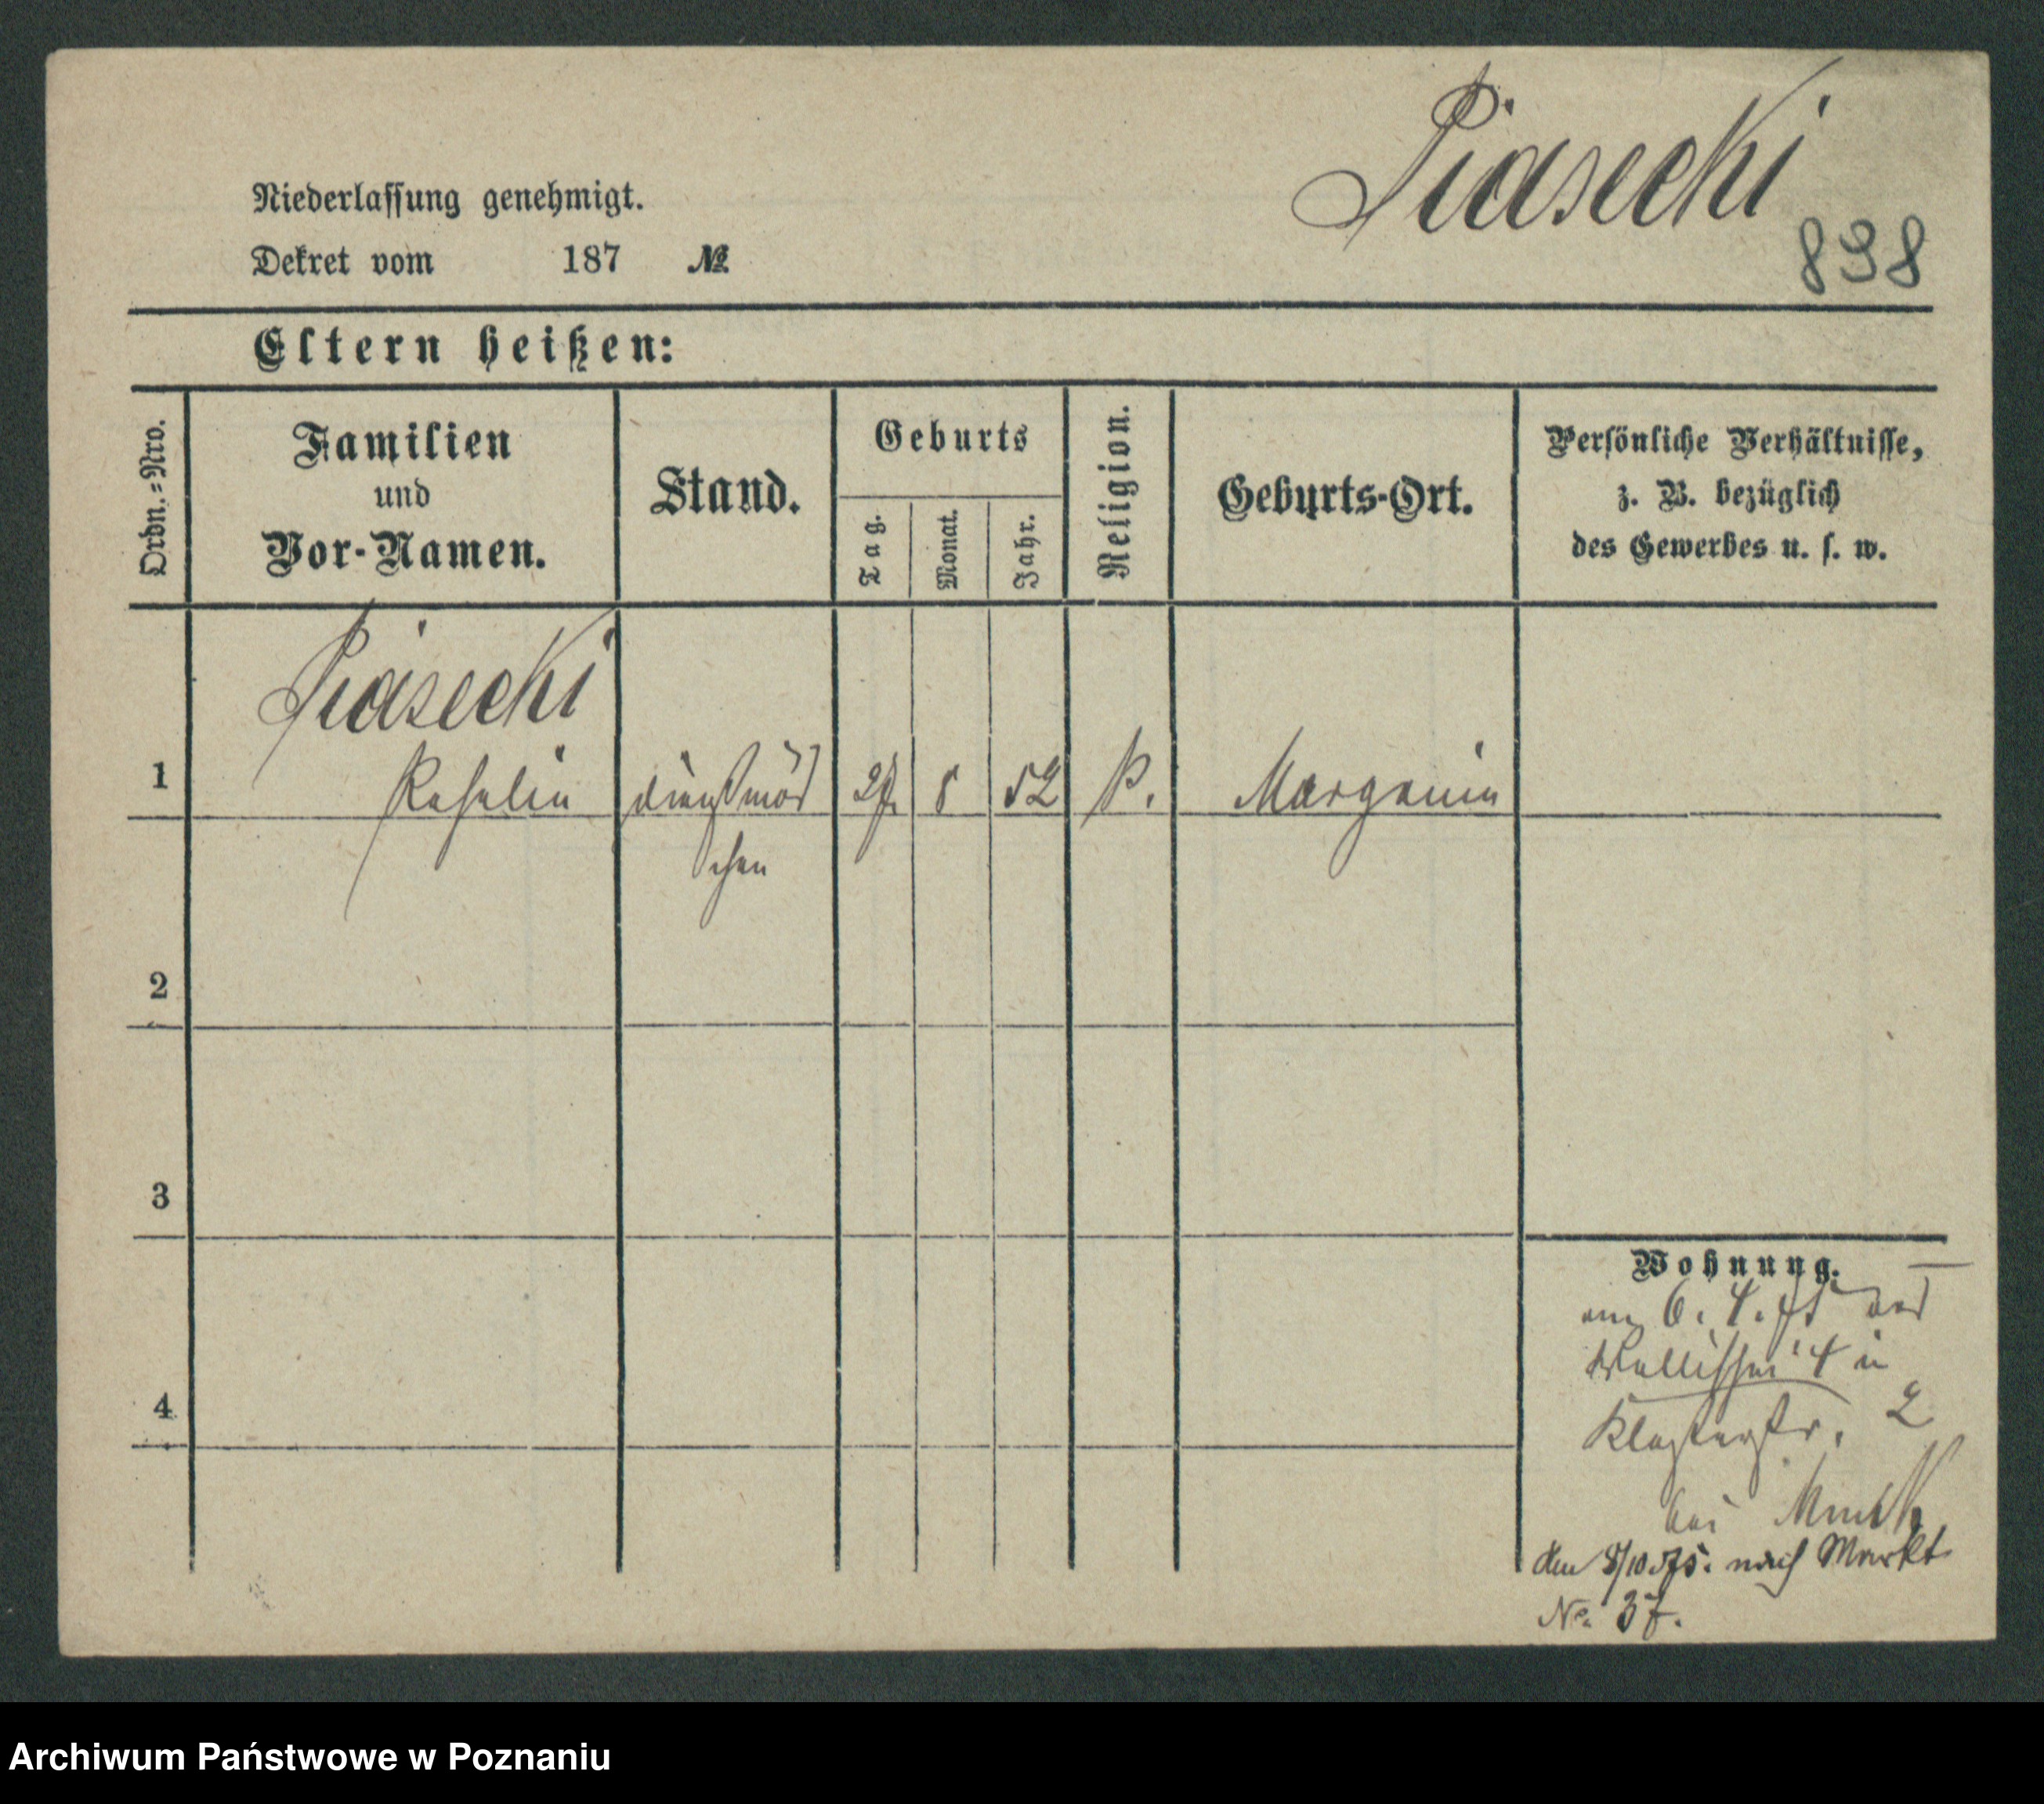 Piasecki
898
Niederlassung genehmigt.
Dekret vom 187 №
Eltern heißen:
Ordn.=Nro.
Familien
und
Vor-Namen.
Stand.
Geburts
Tag.
Monat.
Jahr.
Religion.
Geburts-Ort.
Persönliche Verhältnisse,
z. B. bezüglich
des Gewerbes u. s. w.
Piasecki
1 Rosalie dienstmäd 27. 8 52 k. Margonin
chen
2
3
4
Wohnung.
am 6. 4. 75 von
Wallischei 4 in
Klosterstr. 2
bei
den 8/10 75. nach Markt
No. 37.
Archiwum Państwowe w Poznaniu